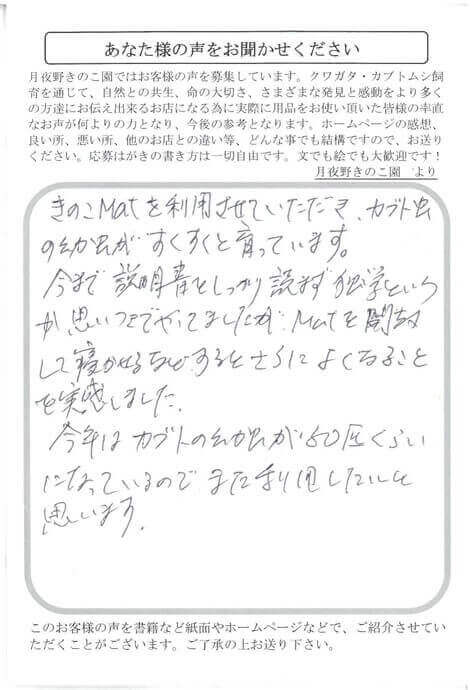 あなた様の声をお聞かせください
月夜野きのこ園ではお客様の声を募集しています。クワガタ・カブトムシ飼
育を通じて、自然との共生、命の大切さ、さまざまな発見と感動をより多く
の方達にお伝え出来るお店になる為に実際に用品をお使い頂いた皆様の率直
なお声が何よりの力となり、今後の参考となります。ホームページの感想、
良い所、悪い所、他のお店との違い等、どんな事でも結構ですので、お送り
ください。応募はがきの書き方は一切自由です。文でも絵でも大歓迎です!
月夜野きのこ園 より
きのこMatを利用させていただき、カブト虫
の幼虫がすくすくと育っています。
今まで説明書をしっかり読まず独学という
か思いつきでやってましたが、Matを開封
して寝かせるなどするとさらによくなること
を実感しました。
今年はカブトの幼虫が150匹くらい
になっているのでまた利用したいと
思います。
このお客様の声を書籍など紙面やホームページなどで、ご紹介させてい
ただくことがございます。ご了承の上お送り下さい。